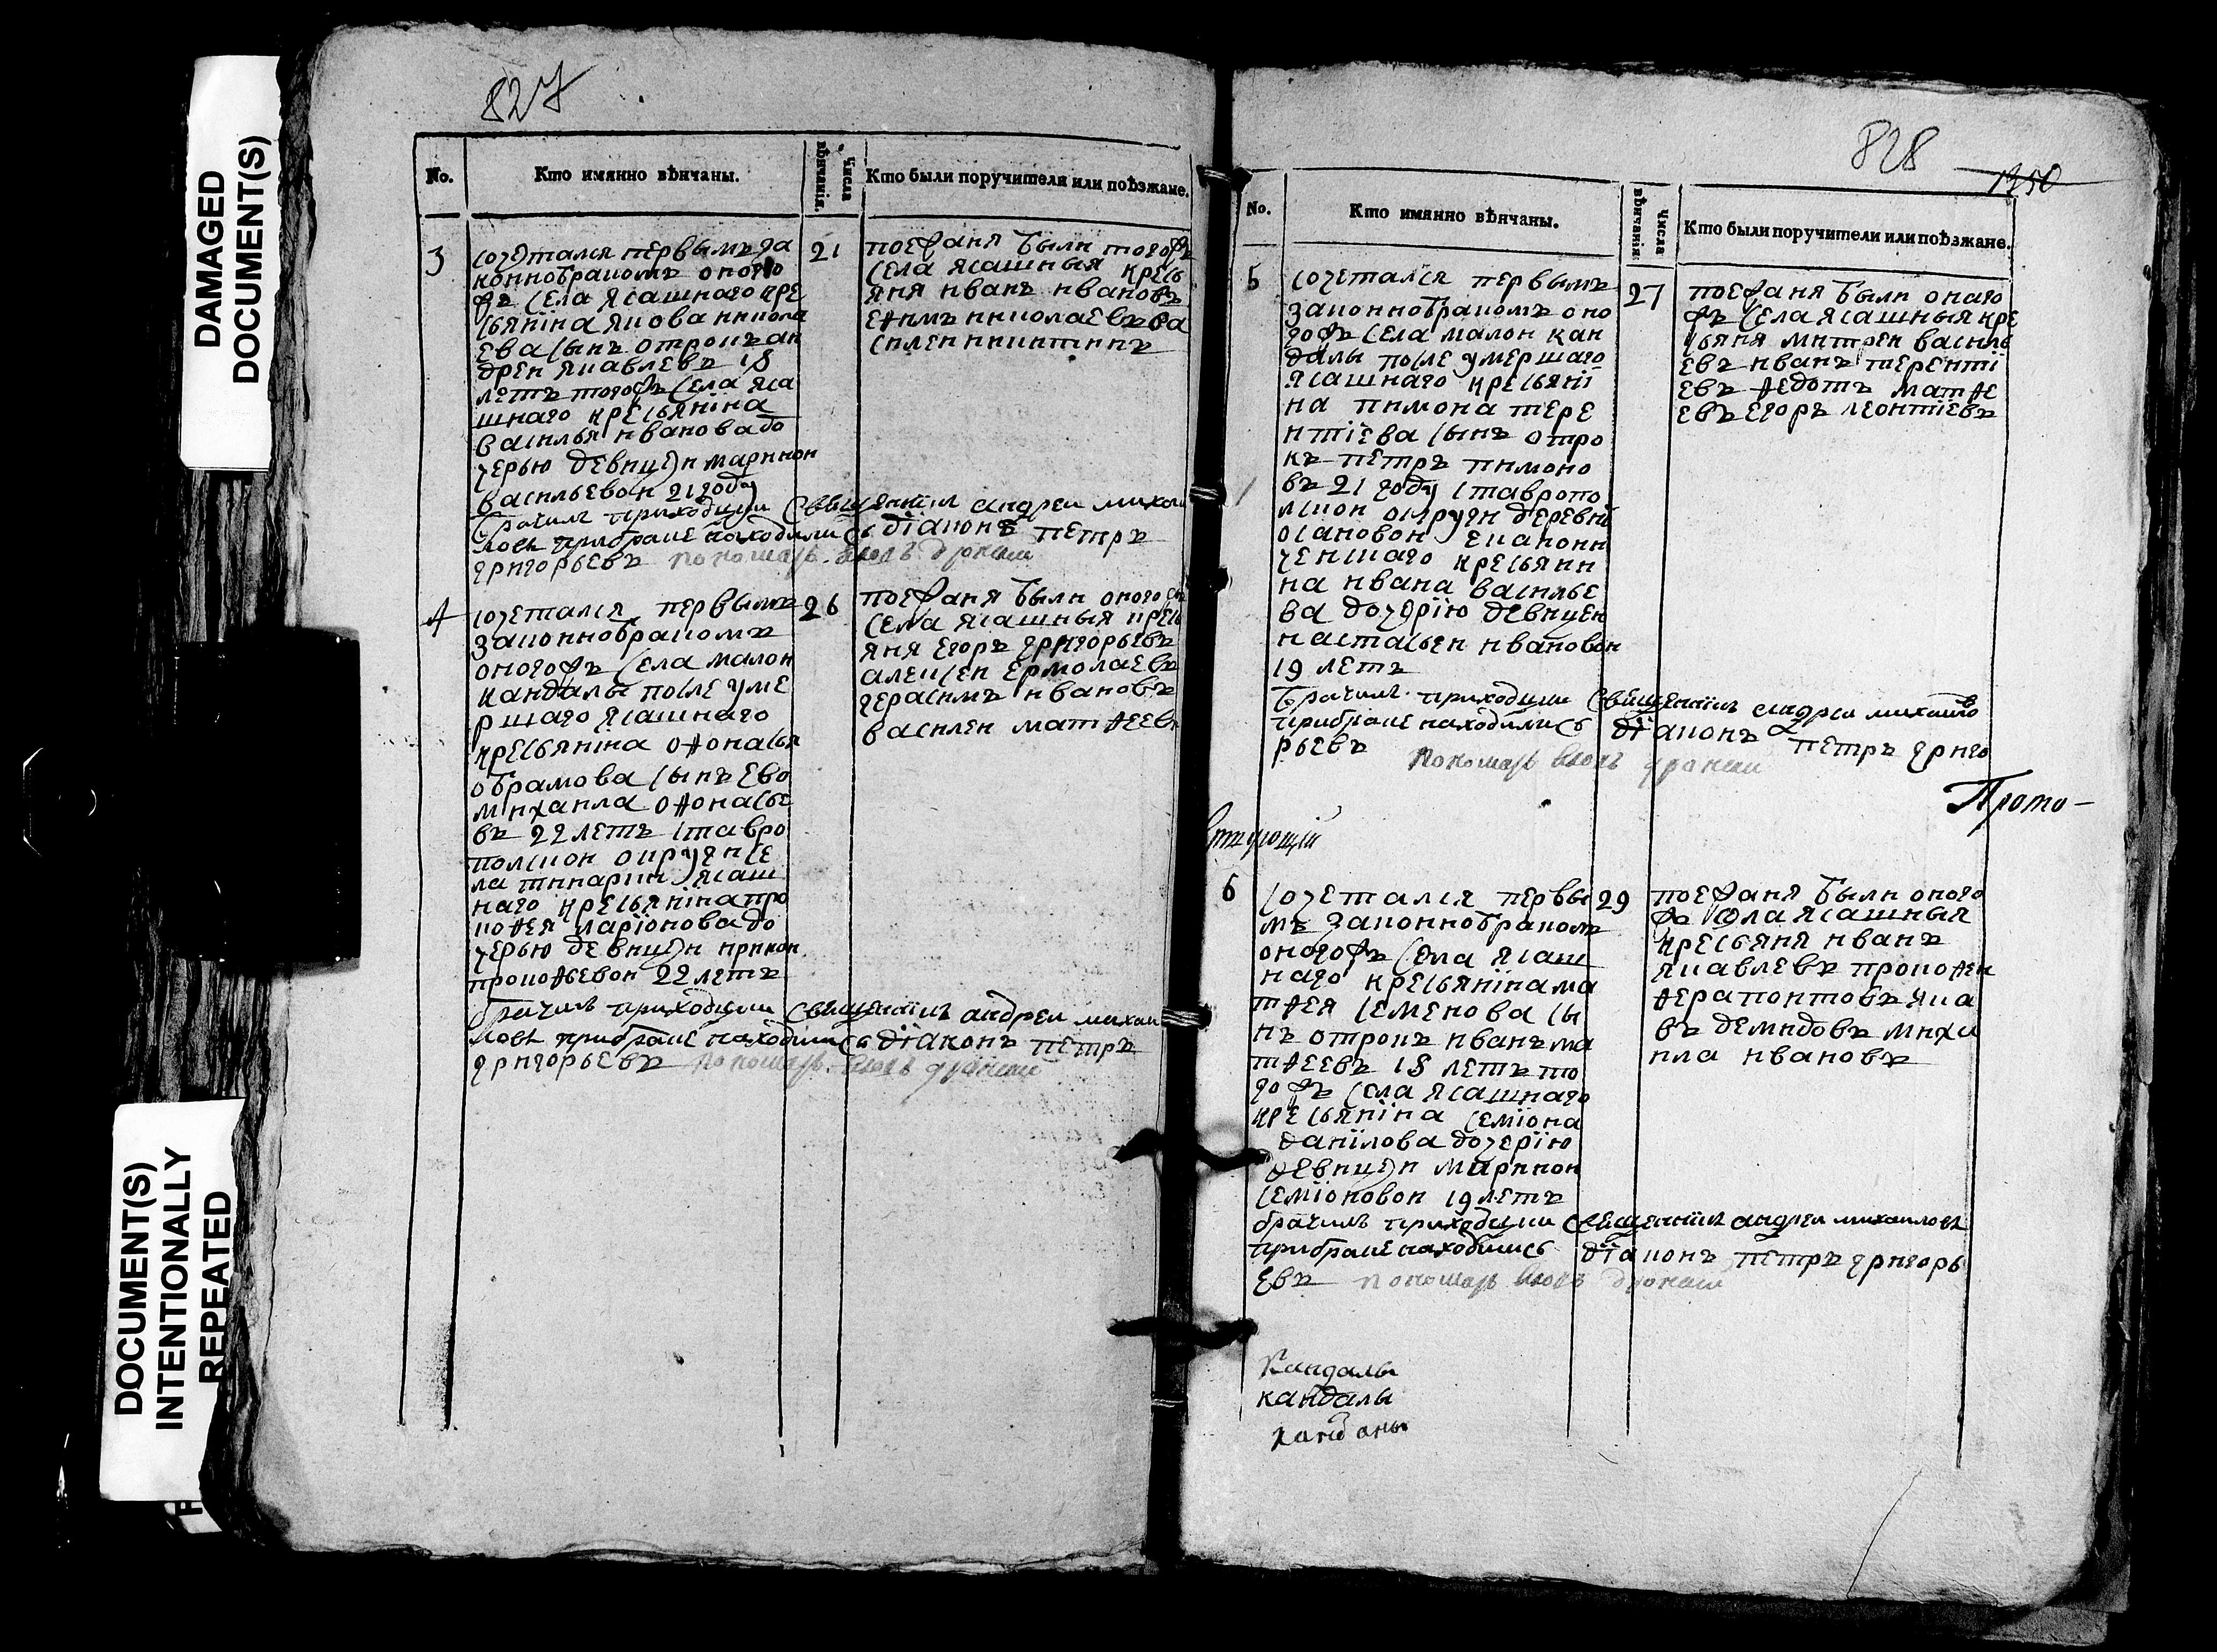 DAMAGED
DOCUMENT(S)
DOCUMENT(S)
INTENTIONALLY
REPEATED
827
No.
Кто имянно вѣнчаны.
Числа вѣнчанія.
Кто были поручители или поѣзжане.
3
сочетался первымъ за
коннобракомъ оного
жъ села ясашнаго кре
стьянїна якова никола
ева сынъ отрокъ ан
дреи яковлевъ 18
летъ тогожъ села яса
шнаго крестьянїна
василья ивановадо
черью девицеи марикои
васильевои 21 году
21
поежаня были тогожъ
села ясашныя кресть
яня иванъ ивановъ
ефимъ николаевъ ва
силеи никитинъ
брачилъ приходцкии священникъ андреи михаи
ловъ прибраке находились дїаконъ петръ
григорьевъ
4
сочетался первымъ
законнобракомъ
оногожъ села малои
кандалы после уме
ршаго ясашнаго
крестьянїна офонасья
обрамова сынъ ево
михаила офонасье
въ 22 летъ ставро
полскои округи се
ла тинарки ясаш
наго крестьянїнапро
кофея ларїонова до
черью девицеи ириnoи
прокофьевои 22 летъ
26
поежаня были оногожъ
села ясашныя кресть
яня егоръ григорьевъ
алексеи ермолаевъ
герасимъ ивановъ
василеи матфеевъ
брачилъ приходцкии священникъ андреи михаи
ловъ прибраке находились дїаконъ петръ
григорьевъ
828
1250
No.
Кто имянно вѣнчаны.
Числа вѣнчанія.
Кто были поручители или поѣзжане.
5
сочетался первымъ
законнобракомъ оно
гожъ села малои кан
далы после умершаго
ясашнаго крестьянї
на пимона тере
нтїева сынъ отро
къ петръ пимоно
въ 21 году ставропо
лскои округи деревнї
осановои екапони
ченскаго крестьяни
на ивана василье
ва дочерїю девицеи
настасьеи ивановои
19 летъ
27
поежаня были оного
жъ села ясашныя кре
стьяня митреи василь
евъ иванъ терентї
евъ федотъ матфе
евъ егоръ леонтїевъ
брачилъ приходцкии священникъ андреи михаило
прибраке находились дїаконъ петръ григо
рьевъ
Прото-
6
сочетался первы
мъ законнобракомъ
оногожъ села ясаш
наго крестьянїнама
тфея семенова сы
нъ отрокъ иванъ ма
тфеевъ 18 летъ то
гожъ села ясашнаго
крестьянїна семїона
данїлова дочерїю
девицеи марикои
семїоновои 19 летъ
29
поежаня были оного
жъ села ясашныя
крестьяня иванъ
яковлевъ прокофеи
ферапонтовъ яко
въ демидовъ михаи
ила ивановъ
брачилъ приходцкии священникъ андреи михаиловъ
прибраке находились дїаконъ петръ григорь
евъ
Кандалы
кандалы